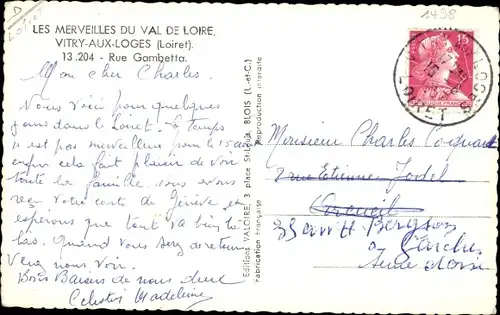 1498
LES MERVEILLES DU VAL DE LOIRE.
VITRY-AUX-LOGES (Loiret).
13.204 - Rue Gambetta.
Mon cher Charles.
Nous voici pour quelques
jours dans le Loiret. Le temps
n'est pas merveilleux pour le 15 août
enfin cela fait plaisir de voir
toute la famille. nous avons
reçu votre carte de
espérons que tout va bien
bas. Quand vous serez de retour
Venez nous voir.
Bons Baisers de nous deux
Célestin Madeleine
Editions VALOIRE, 3 place St-Louis, BLOIS (L.-et-C.)
Fabrication Française
Reproduction interdite
15F
LOIRET
Monsieur Charles Coignard
2 rue Etienne Jodel
Arcueil
35 av H Bergson
à Garches
Seine et Oise